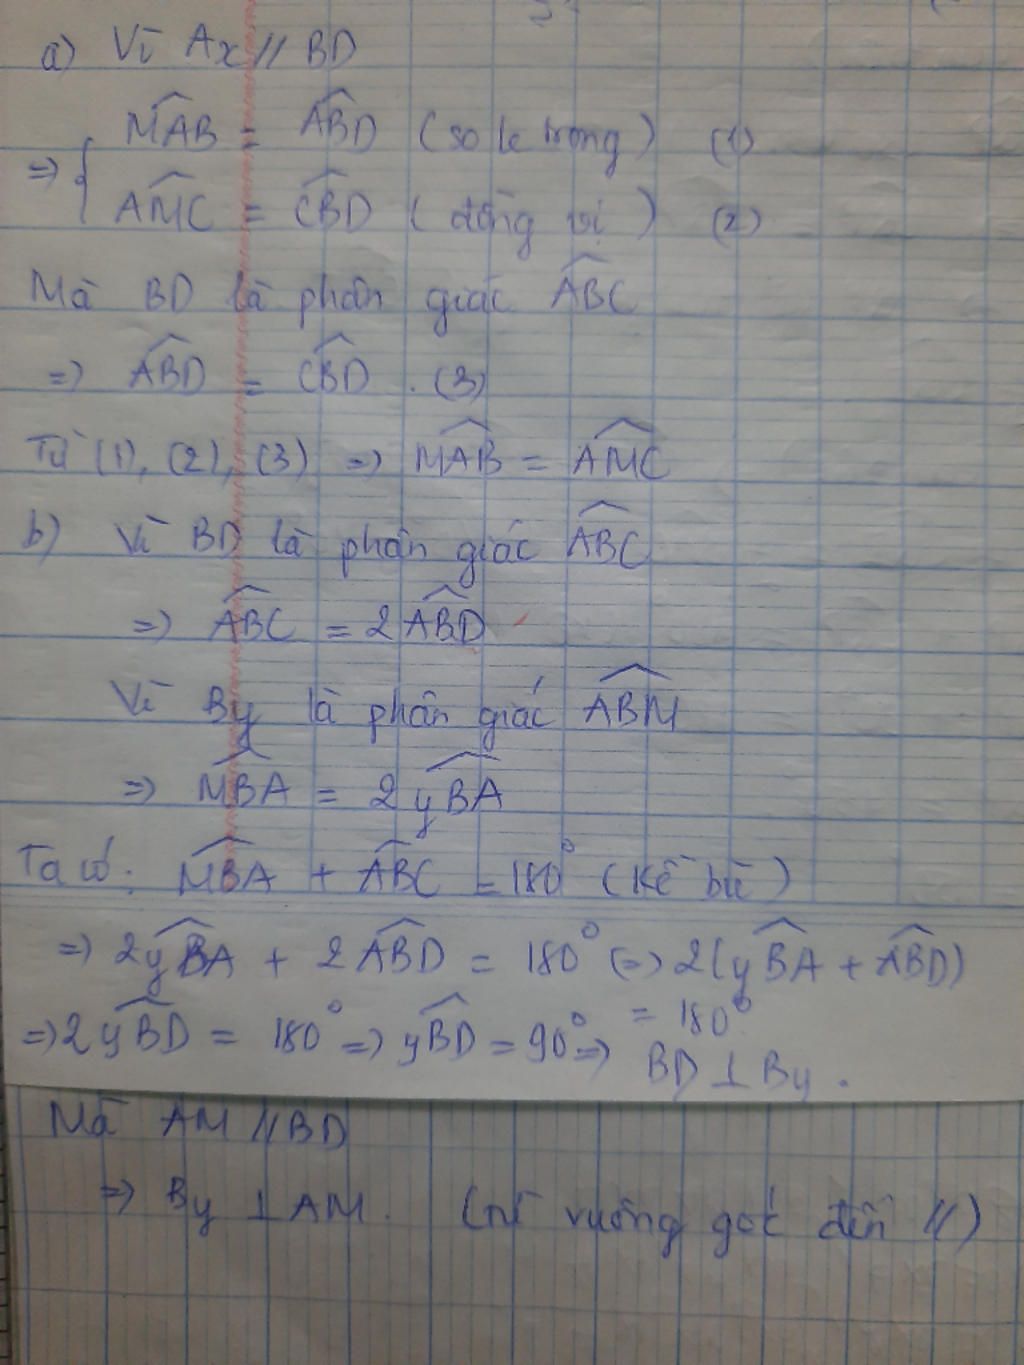 a) Vì Ax // BD
=> { \widehat{MAB} = \widehat{ABD} (so le trong) (1)
\widehat{AMC} = \widehat{CBD} (đồng vị) (2)
Mà BD là phân giác \widehat{ABC}
=> \widehat{ABD} = \widehat{CBD} . (3)
Từ (1), (2), (3) => \widehat{MAB} = \widehat{AMC}
b) Vì BD là phân giác \widehat{ABC}
=> \widehat{ABC} = 2\widehat{ABD}
Vì By là phân giác \widehat{ABM}
=> \widehat{MBA} = 2\widehat{yBA}
Ta có: \widehat{MBA} + \widehat{ABC} = 180° (Kề bù)
=> 2\widehat{yBA} + 2\widehat{ABD} = 180° (=> 2(\widehat{yBA} + \widehat{ABD})
= 180°
=> 2\widehat{yBD} = 180° => \widehat{yBD} = 90° =>
BD ⊥ By .
Mà AM // BD
=> By ⊥ AM. ( vuông góc đến //)